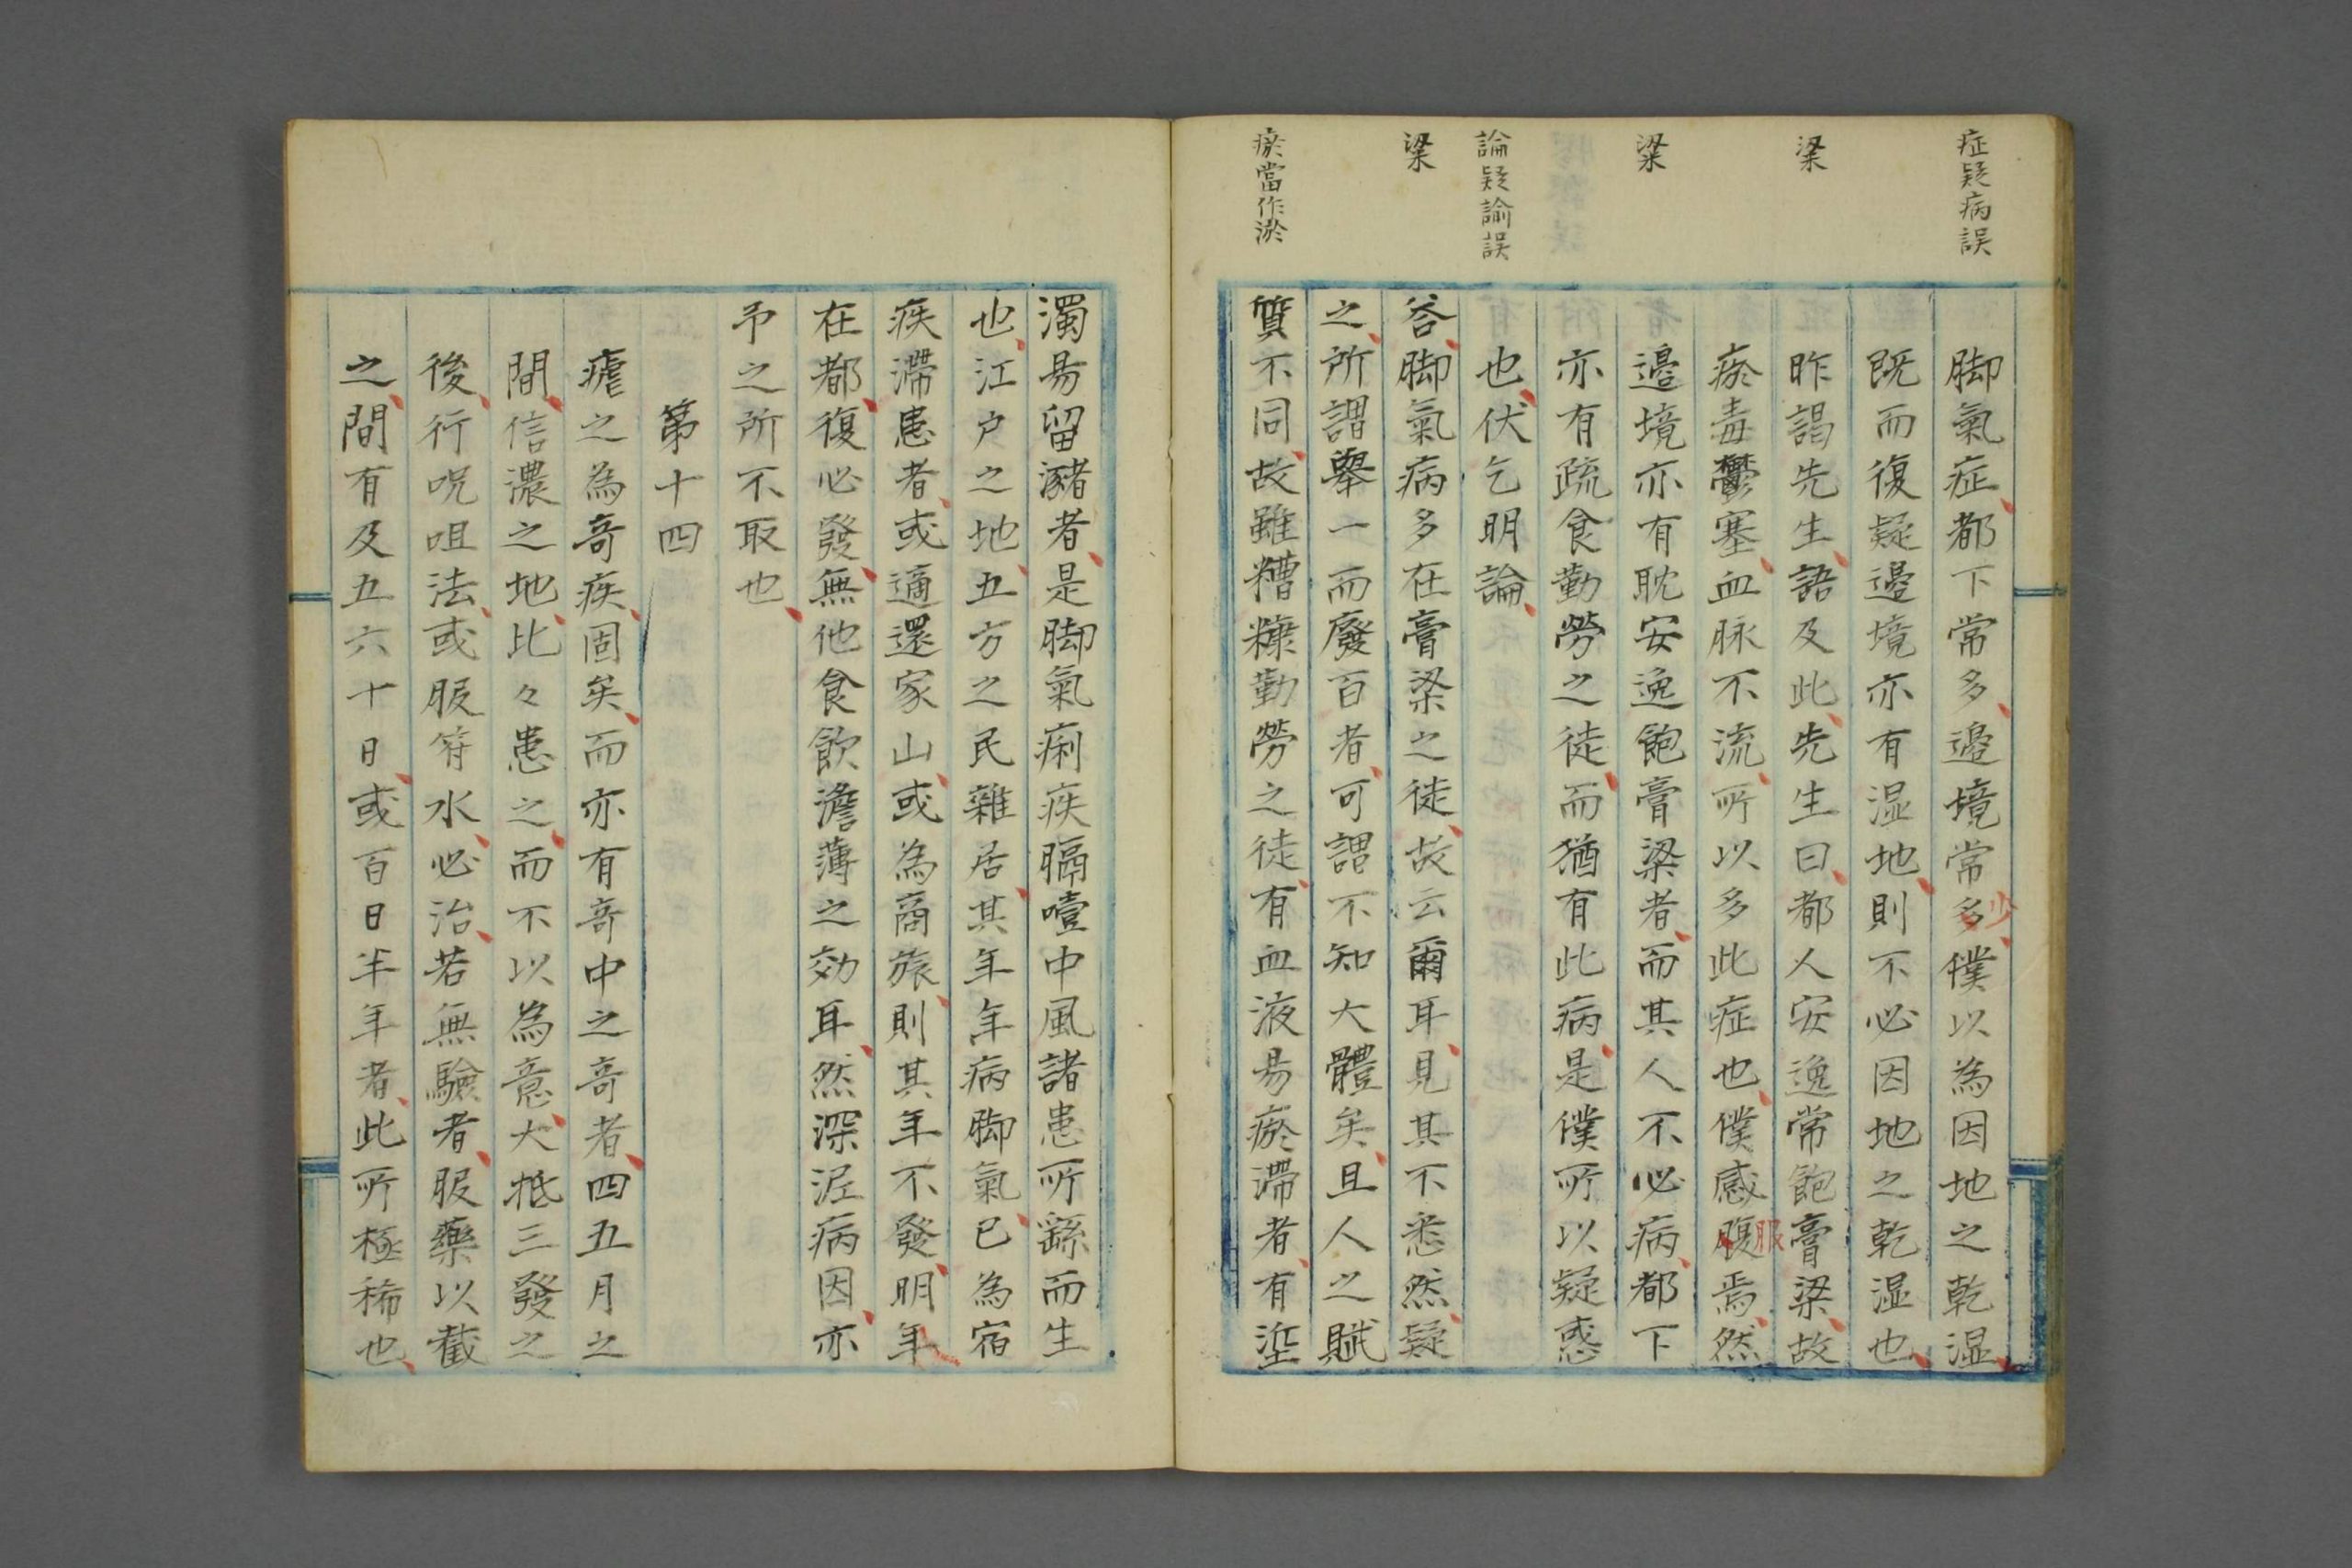 症疑病誤
粱
粱
論疑諭誤
粱
瘀當作淤
脚氣症都下常多邊境常多少僕以為因地之乾湿
既而復疑邊境亦有湿地則不必因地之乾湿也
昨謁先生語及此先生曰都人安逸常飽膏梁故
瘀毒鬱塞血脉不流所以多此症也僕感腹服焉然
邉境亦有耽安逸飽膏梁者而其人不必病都下
亦有疏食勤勞之徒而猶有此病是僕所以疑惑
也伏乞明論
答脚氣病多在膏梁之徒故云爾耳見其不悉然疑
之所謂舉一而廢百者可謂不知大體矣且人之賦
質不同故雖糟糠勤勞之徒有血液易瘀滯者有涬
濁易留瀦者是脚氣痢疾膈噎中風諸患所繇而生
也江戸之地五方之民雜居其年年病脚氣已為宿
疾滯患者或適還家山或為商旅則其年不發明年
在都復必發無他食飲澹薄之効耳然深泥病因亦
予之所不取也
第十四
瘧之為奇疾固矣而亦有奇中之奇者四五月之
間信濃之地比々患之而不以為意大抵三發之
後行呪咀法或服符水必治若無驗者服藥以截
之間有及五六十日或百日半年者此所極稀也